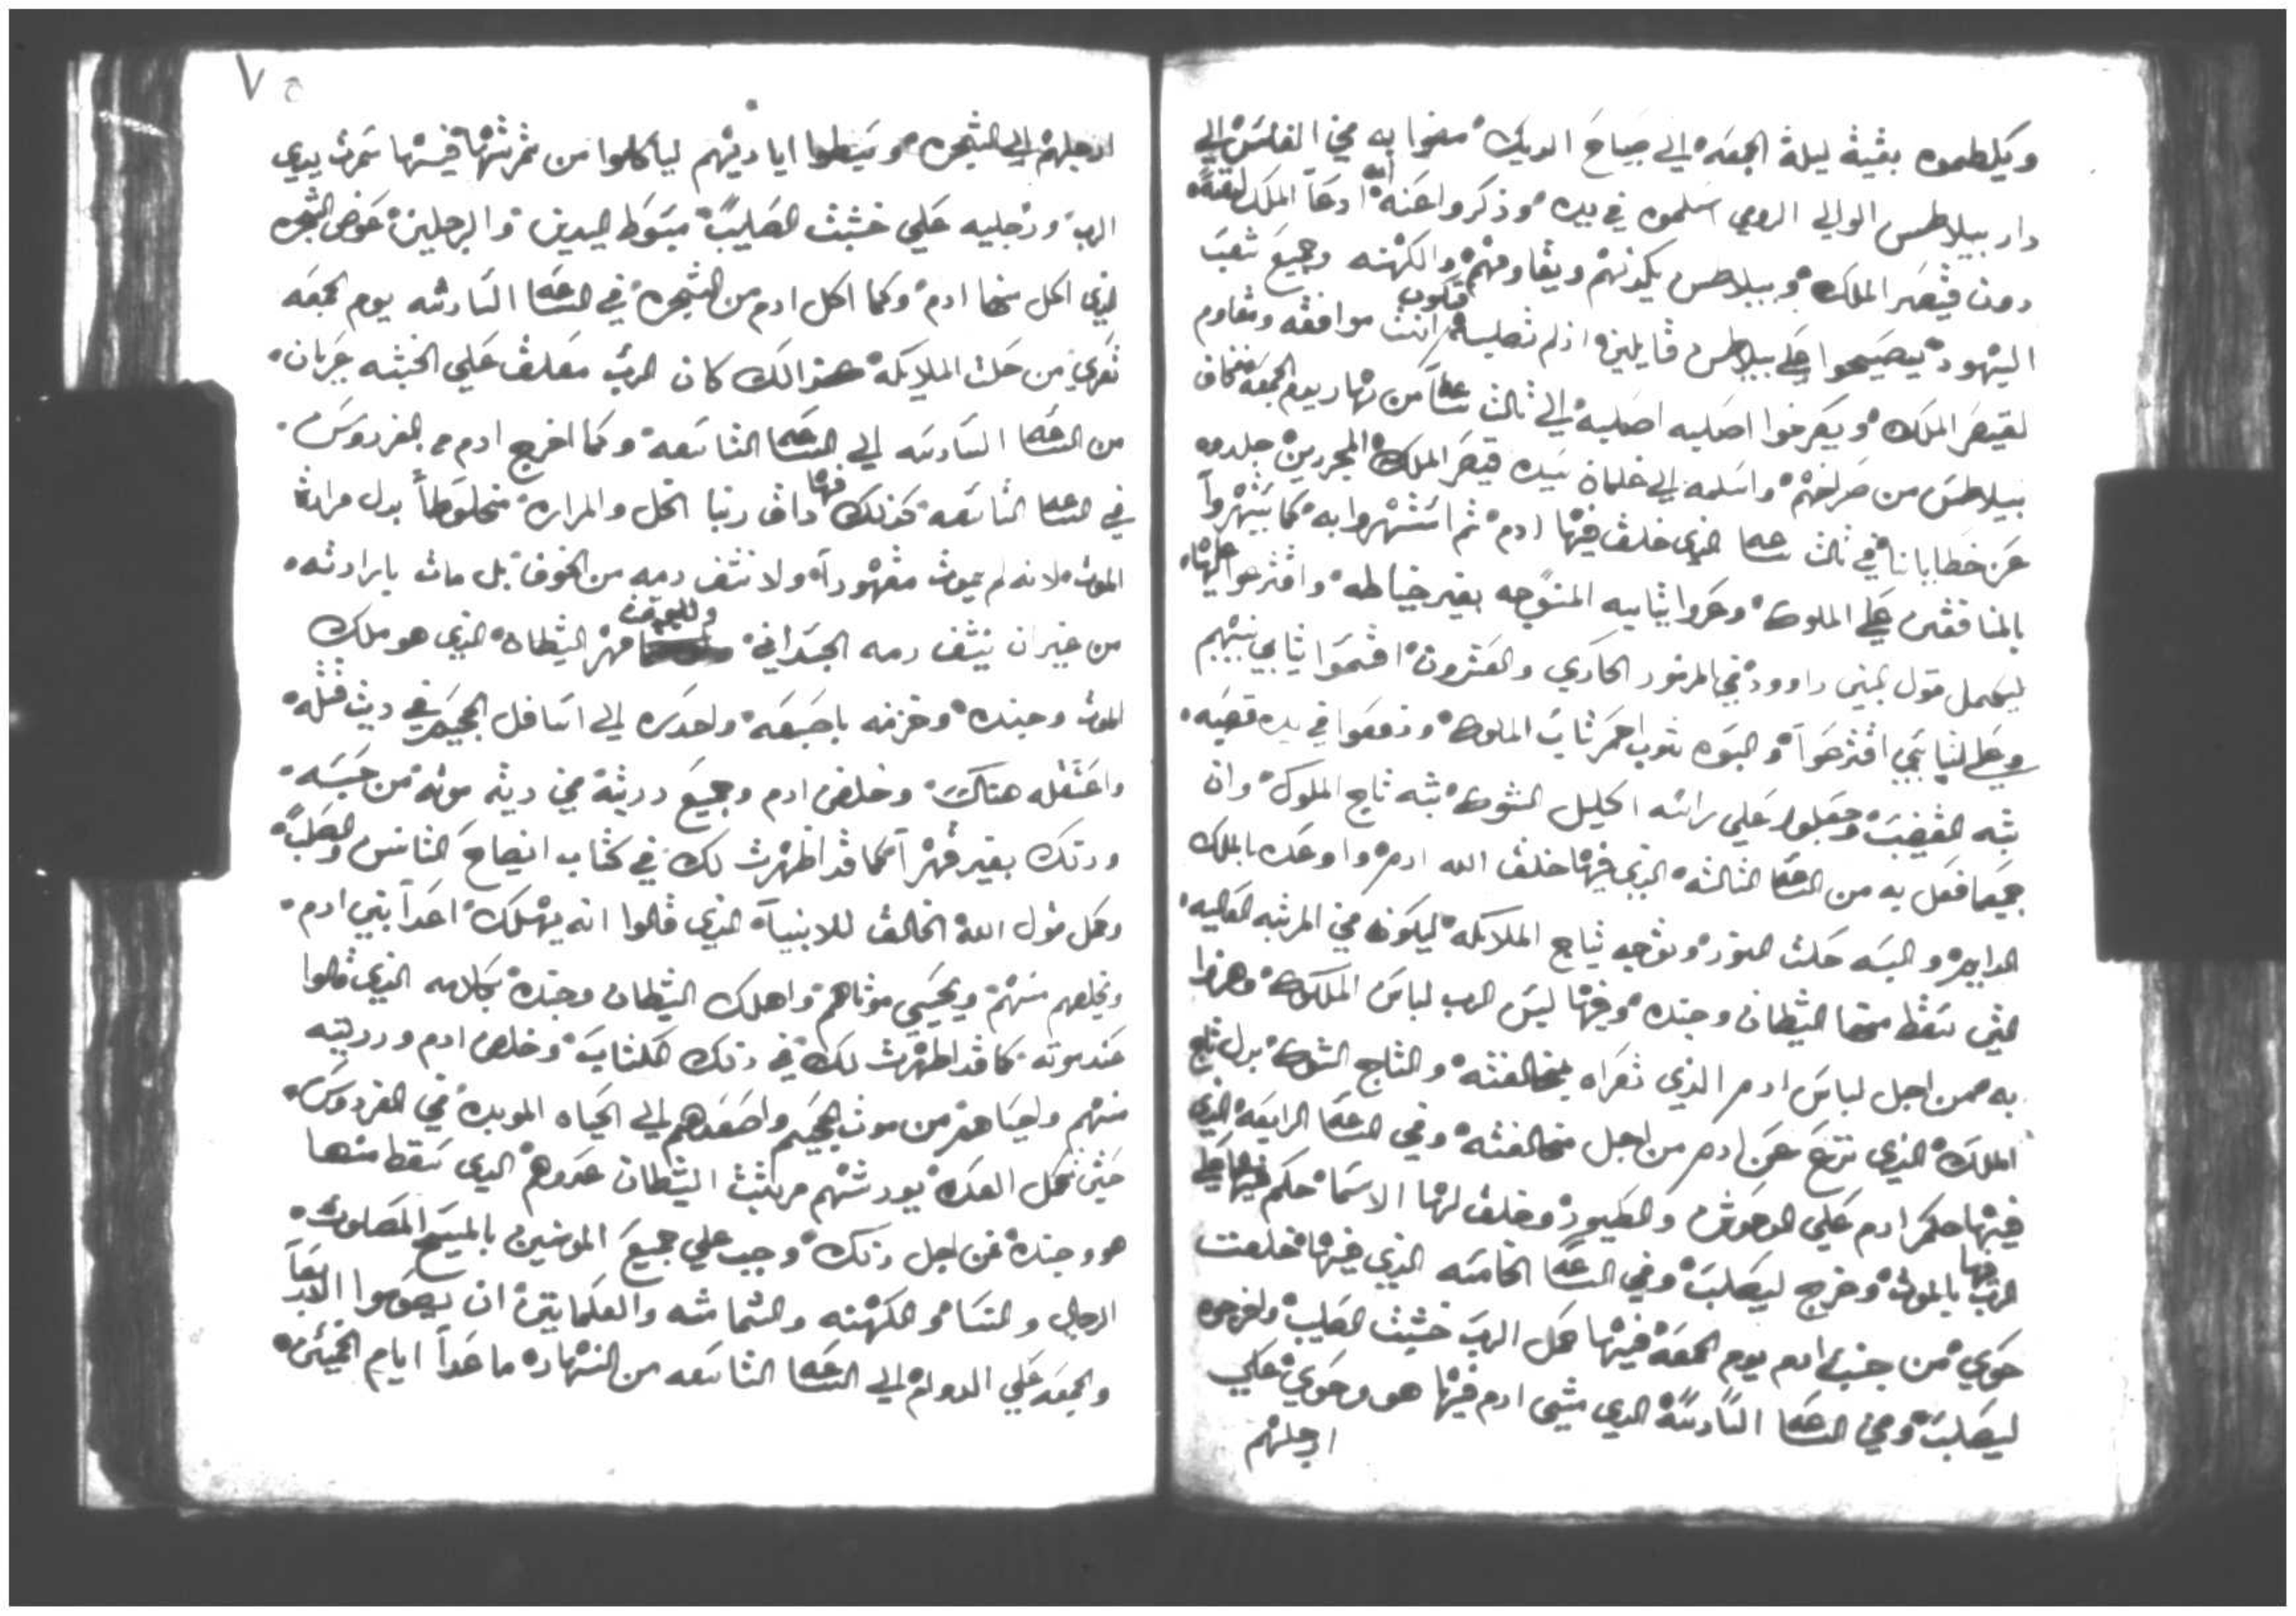 ويلطموه بقية ليلة الجمعه الي صياح الديك مضوا به في الغلس الي
دار بيلاطس الوالي الرومي اسلموه في يده وذكروا عنه انه ادعا الملك لنفسه
دون قيصر الملك وبيلاطس يكذبهم ويقاومهم والكهنه وجميع شعب
اليهود يصيحوا علي بيلاطس قايلين اذ لم تصلبه فتكون انت موافقه وتقاوم
لقيصر الملك ويصرخوا اصلبه اصلبه الي ثالث ساعه من نهار يوم الجمعه فخاف
بيلاطس من صراخهم واسلمه الي غلمان سيده قيصر الملك المجردين جلدوه
عن خطايانا في ثالث ساعه الذي خلق فيها ادم ثم استهزوا به كما يستهزوا
بالمنافقين علي الملوك وعروا ثيابه المنسوجه بغير خياطه واقترعوا عليها
ليكمل قول النبي داوود في المزمور الحادي والعشرون اقسموا ثيابي بينهم
وعلي لباسي اقترعوا والبسوه ثوب احمر ثياب الملوك ودفعوا في يده قصبه
شبه القضيب وجعلوا علي راسه اكليل الشوك شبه تاج الملوك وان
جميع ما فعل به من الساعه الثالثه الذي فيها خلق الله ادم واوعده بالملك
الدايم والبسه حلت النور وتوجه بتاج الملايكه ليكون في المرتبه العاليه
التي سقط منها الشيطان وجنده وفيها لبس الرب لباس الملوك وهزوا
به من اجل لباس ادم الذي تعراه بمخالفته والتاج الشوك بدل تاج
الملك الذي نزع عن ادم من اجل مخالفته وفي الساعه الرابعه الذي
فيها حكم ادم علي الوحوش والطيور وخلق لها الاسما حكم فيها علي
الرب فيها بالموت وخرج ليصلب وفي الساعه الخامسه الذي فيها خلقت
حوي من جنب ادم يوم الجمعه فيها حمل الرب خشبت الصليب واخرجوه
ليصلب وفي الساعه السادسه الذي مشي ادم فيها هو وحوي علي
ارجلهم
٧٥
ارجلهم الي الشجره وبسطوا اياديهم لياكلوا من ثمرتها فيها سمرت يدي
الرب ورجليه علي خشبت الصليب مبسوط اليدين والرجلين عوض الشجره
الذي اكل منها ادم وكما اكل ادم من الشجره في الساعه السادسه يوم الجمعه
تعري من حلت الملايكه هذا لك كان الرب معلق علي الخشبه عريان
من الساعه السادسه الي الساعه التاسعه وكما اخرج ادم من الفردوس
في الساعه التاسعه كذلك فيها داق ربنا الخل والمراره مخلوطا بدل مرارة
الموت لانه لم يموت مقهورا ولا نشف دمه من الخوف بل مات بارادته
من غير ان ينشف دمه الجسداني وللوقت قهر الشيطان الذي هو ملك
الموت وجنده وخزمه باصبعه واحدره الي اسافل الجحيم في ديت قتله
واعتقله هناك وخلص ادم وجميع دريته في ديه موته من حبسه
وذلك بغير قهرا كما قد اظهرت لك في كتاب ايضاح التانس والصلب
وكمل قول الله الخالق للانبياء الذي قالوا انه يهلك اعدا بني ادم
ويخلصهم منهم ويحيي موتاهم واهلك الشيطان وجنده بكلامه الذي قالوا
عند موته كما قد اظهرت لك في ذلك الكتاب وخلص ادم ودريته
منهم واحياهم من موت الجحيم واصعدهم الي الحياه الموبده في الفردوس
حتي يكمل العدد يورثهم مرتبت الشيطان عدوهم الذي سقط منها
هو وجنده فمن اجل ذلك وجب علي جميع المومنين بالمسيح المصلوب
الرجال والنسا والكهنه والشمامسه والعلمانيين ان يصوموا الاربعا
والجمعه علي الدوام الي الساعه التاسعه من النهار ماعدا ايام الخمسين